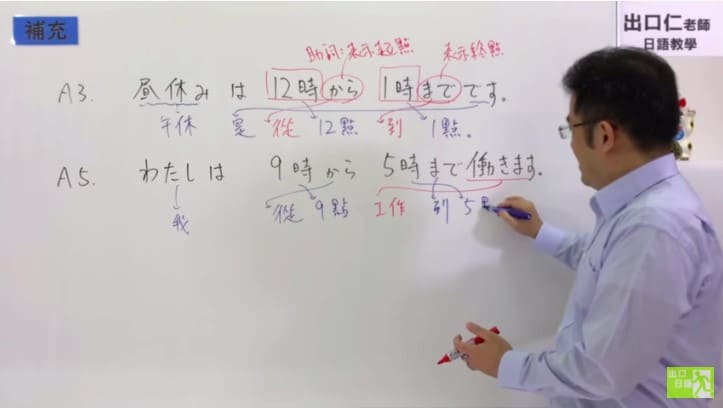 補充
出口仁老師
日語教學
助詞:表示起點 表示終點
A3. 昼休み は 12時から 1時までです。
午休 是 從 12點 到 1點。
A5. わたしは 9時から 5時まで働きます。
我 從 9點 工作 到 5
出口
日語